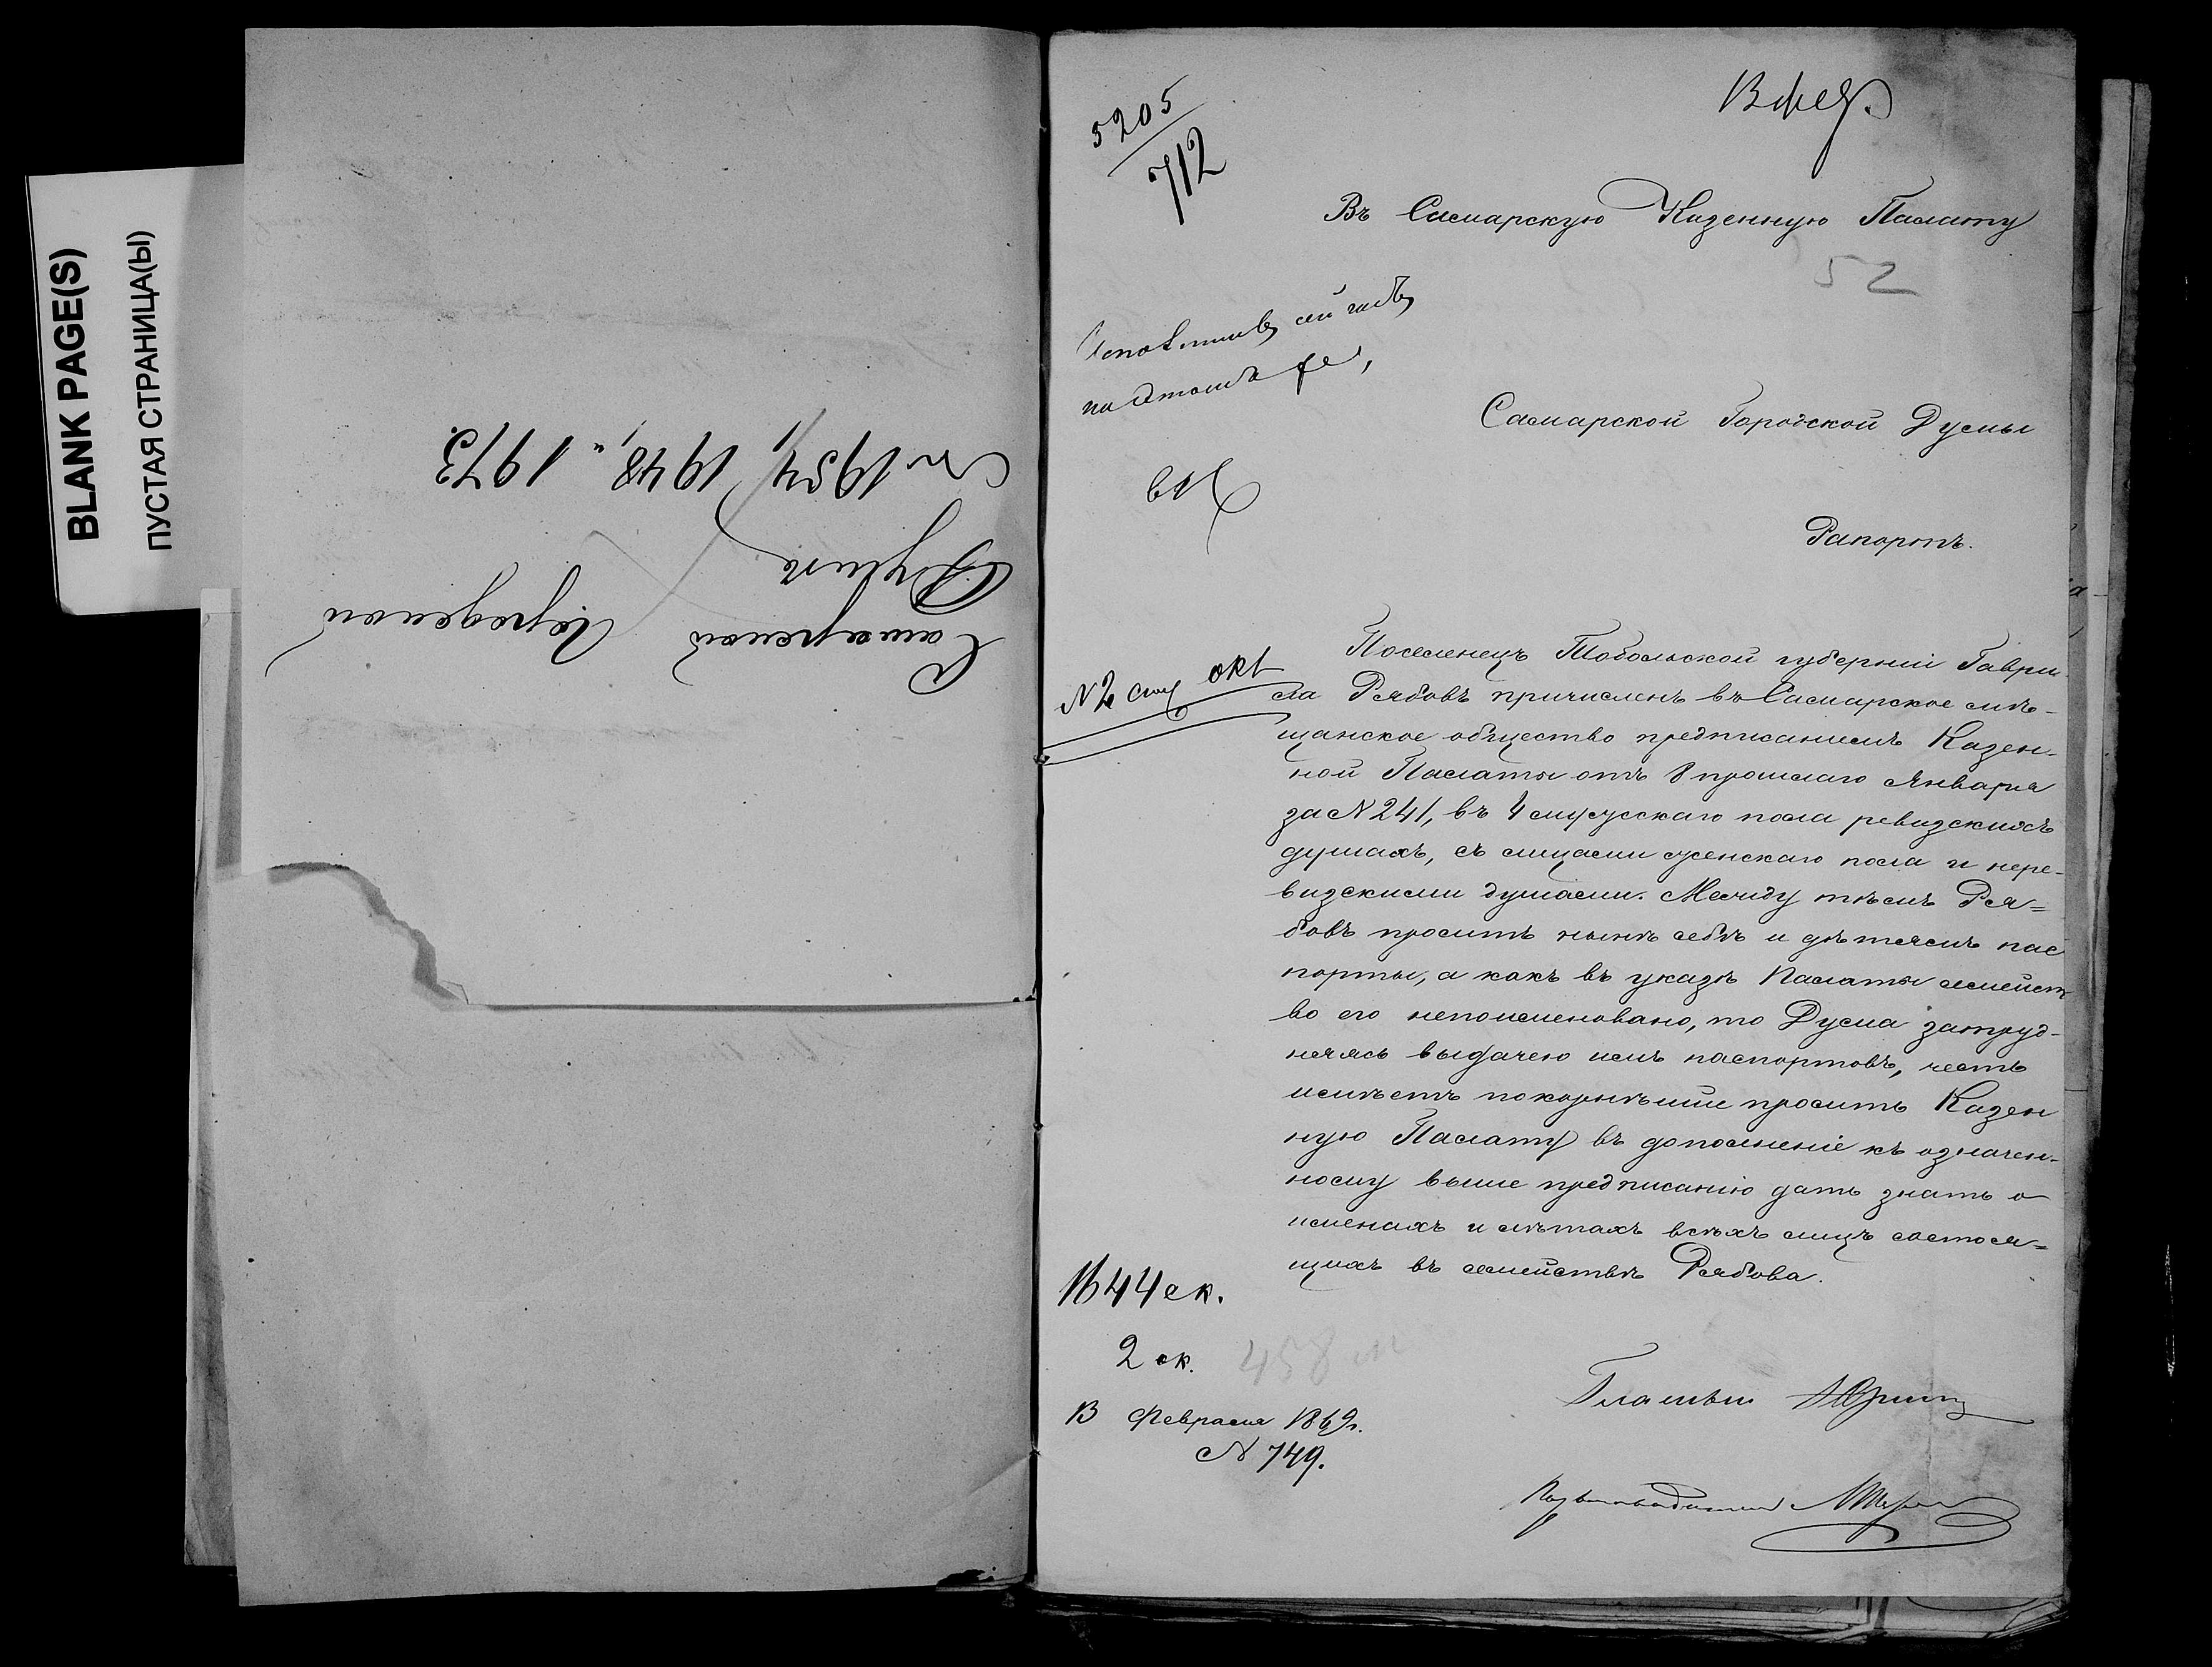 BLANK PAGE(S)
ПУСТАЯ СТРАНИЦА(Ы)
Самарской Городской
Думы
N 1954, 1948, и 1973.
5205
712
13 фев.
Въ Самарскую Казенную Палату
52
Самарской Городской Думы
Рапортъ.
Поселенецъ Тобольской губерніи Гаври-
ла Рябовъ причисленъ въ Самарское мѣ-
щанское общество предписаніемъ Казен-
ной Палаты отъ 8 прошлаго Января
за N 241, въ 4 мужескаго пола ревизскихъ
душахъ, съ лицами женскаго пола и нере-
визскими душами. Между тѣмъ Ря=
бовъ проситъ нынѣ себѣ и дѣтямъ пас
порты, а какъ въ указѣ Палаты семейст
во его непоименовано, то Дума затруд-
няясь выдачею имъ паспортовъ, честь
имѣетъ покорнѣйше просить Казен
ную Палату въ дополненіе къ означен-
ному выше предписанію дать знать о
именахъ и лѣтахъ всѣхъ лицъ состоя=
щихъ въ семействѣ Рябова.
N 2 окт
1644 ск.
2 ск. 458
13 Февраля 1869г.
N 749.